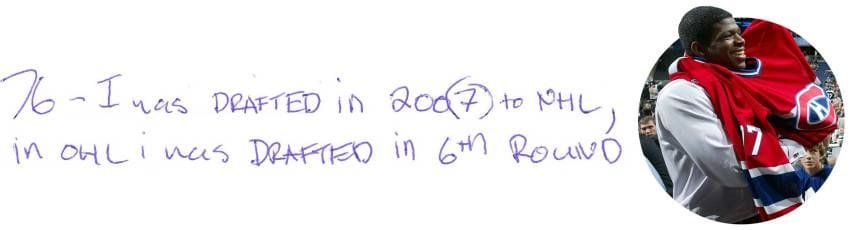 76 - I was DRAFTED in 200(7) to NHL,
in OHL i was DRAFTED in 6th ROUND
17